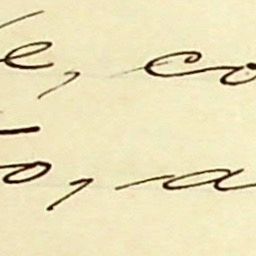 e, co
to, a